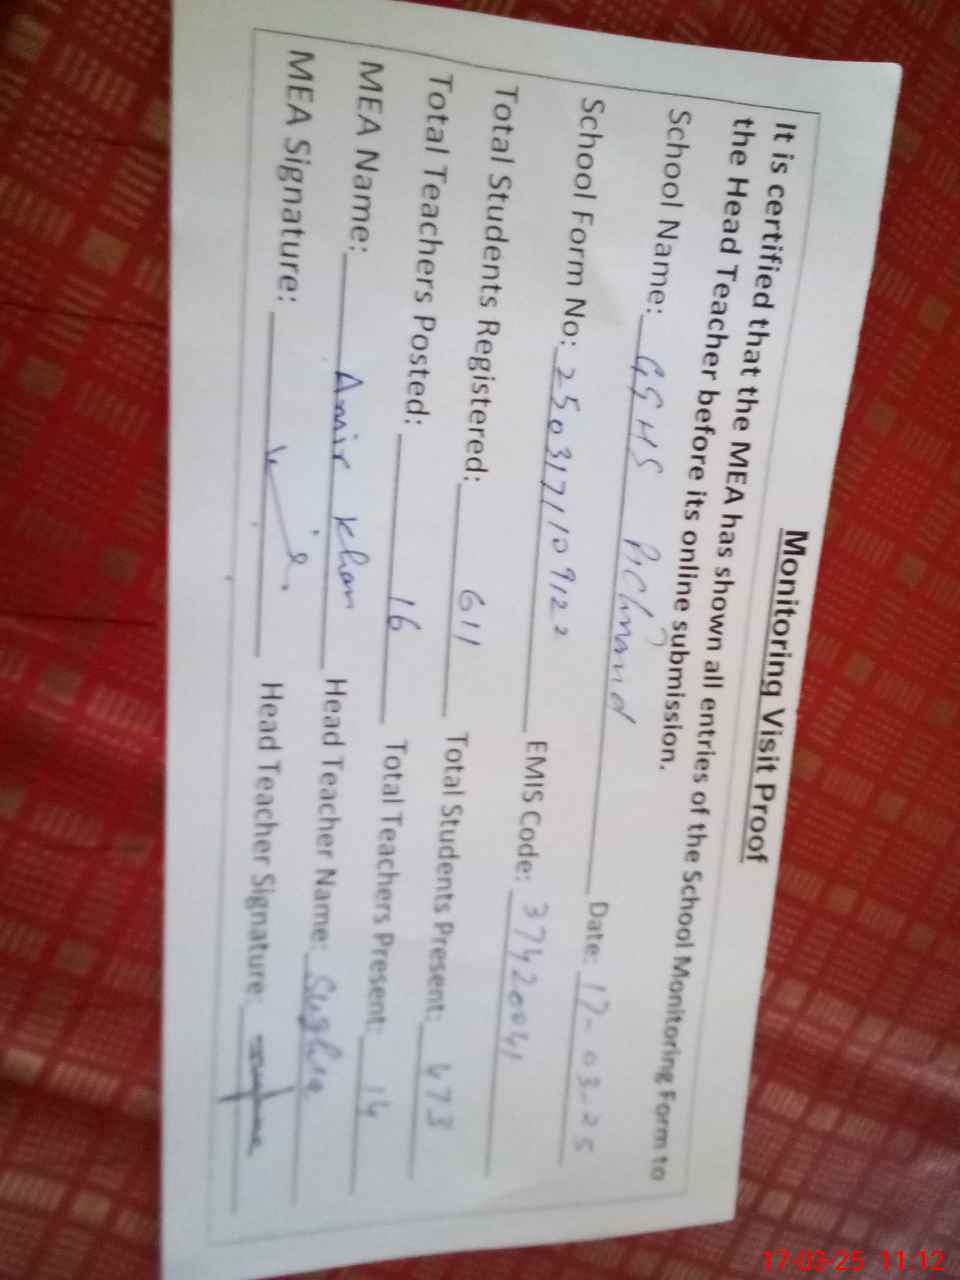 Monitoring Visit Proof
It is certified that the MEA has shown all entries of the School Monitoring Form to
the Head Teacher before its online submission.
School Name: GGHS Pichnand Date: 17-03-25
School Form No: 250317110922 EMIS Code: 37420041
Total Students Registered: 611 Total Students Present: 473
Total Teachers Posted: 16 Total Teachers Present: 14
MEA Name: Amir Khan Head Teacher Name: Sughra
MEA Signature: Head Teacher Signature:
17-03-25 11:12